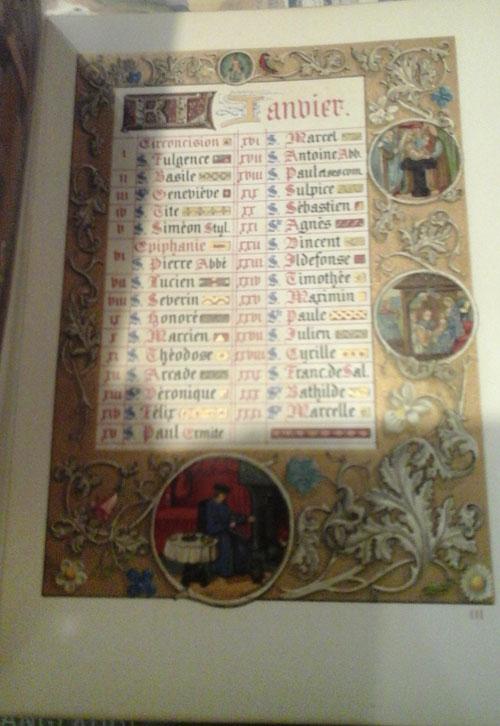 KL Janvier.
Circoncision
I S. Fulgence
II S. Basile
III S. Geneviève
IV S. Tite
V S. Siméon Styl.
Epiphanie
VI S. Pierre Abbé
VII S. Lucien
VIII S. Severin
IX S. Honoré
X S. Marcien
XI S. Théodose
XII S. Arcade
XIII S. Véronique
XIV S. Félix
XV S. Paul Ermite
XVI S. Marcel
XVII S. Antoine Abb.
XVIII S. Paul et ses com.
XIX S. Sulpice
XX S. Sébastien
XXI S. Agnès
XXII S. Vincent
XXIII S. Ildefonse
XXIV S. Timothée
XXV S. Maximin
XXVI S. Paule
XXVII S. Julien
XXVIII S. Cyrille
XXIX S. Franc. de Sal.
XXX S. Bathilde
XXXI S. Marcelle
III